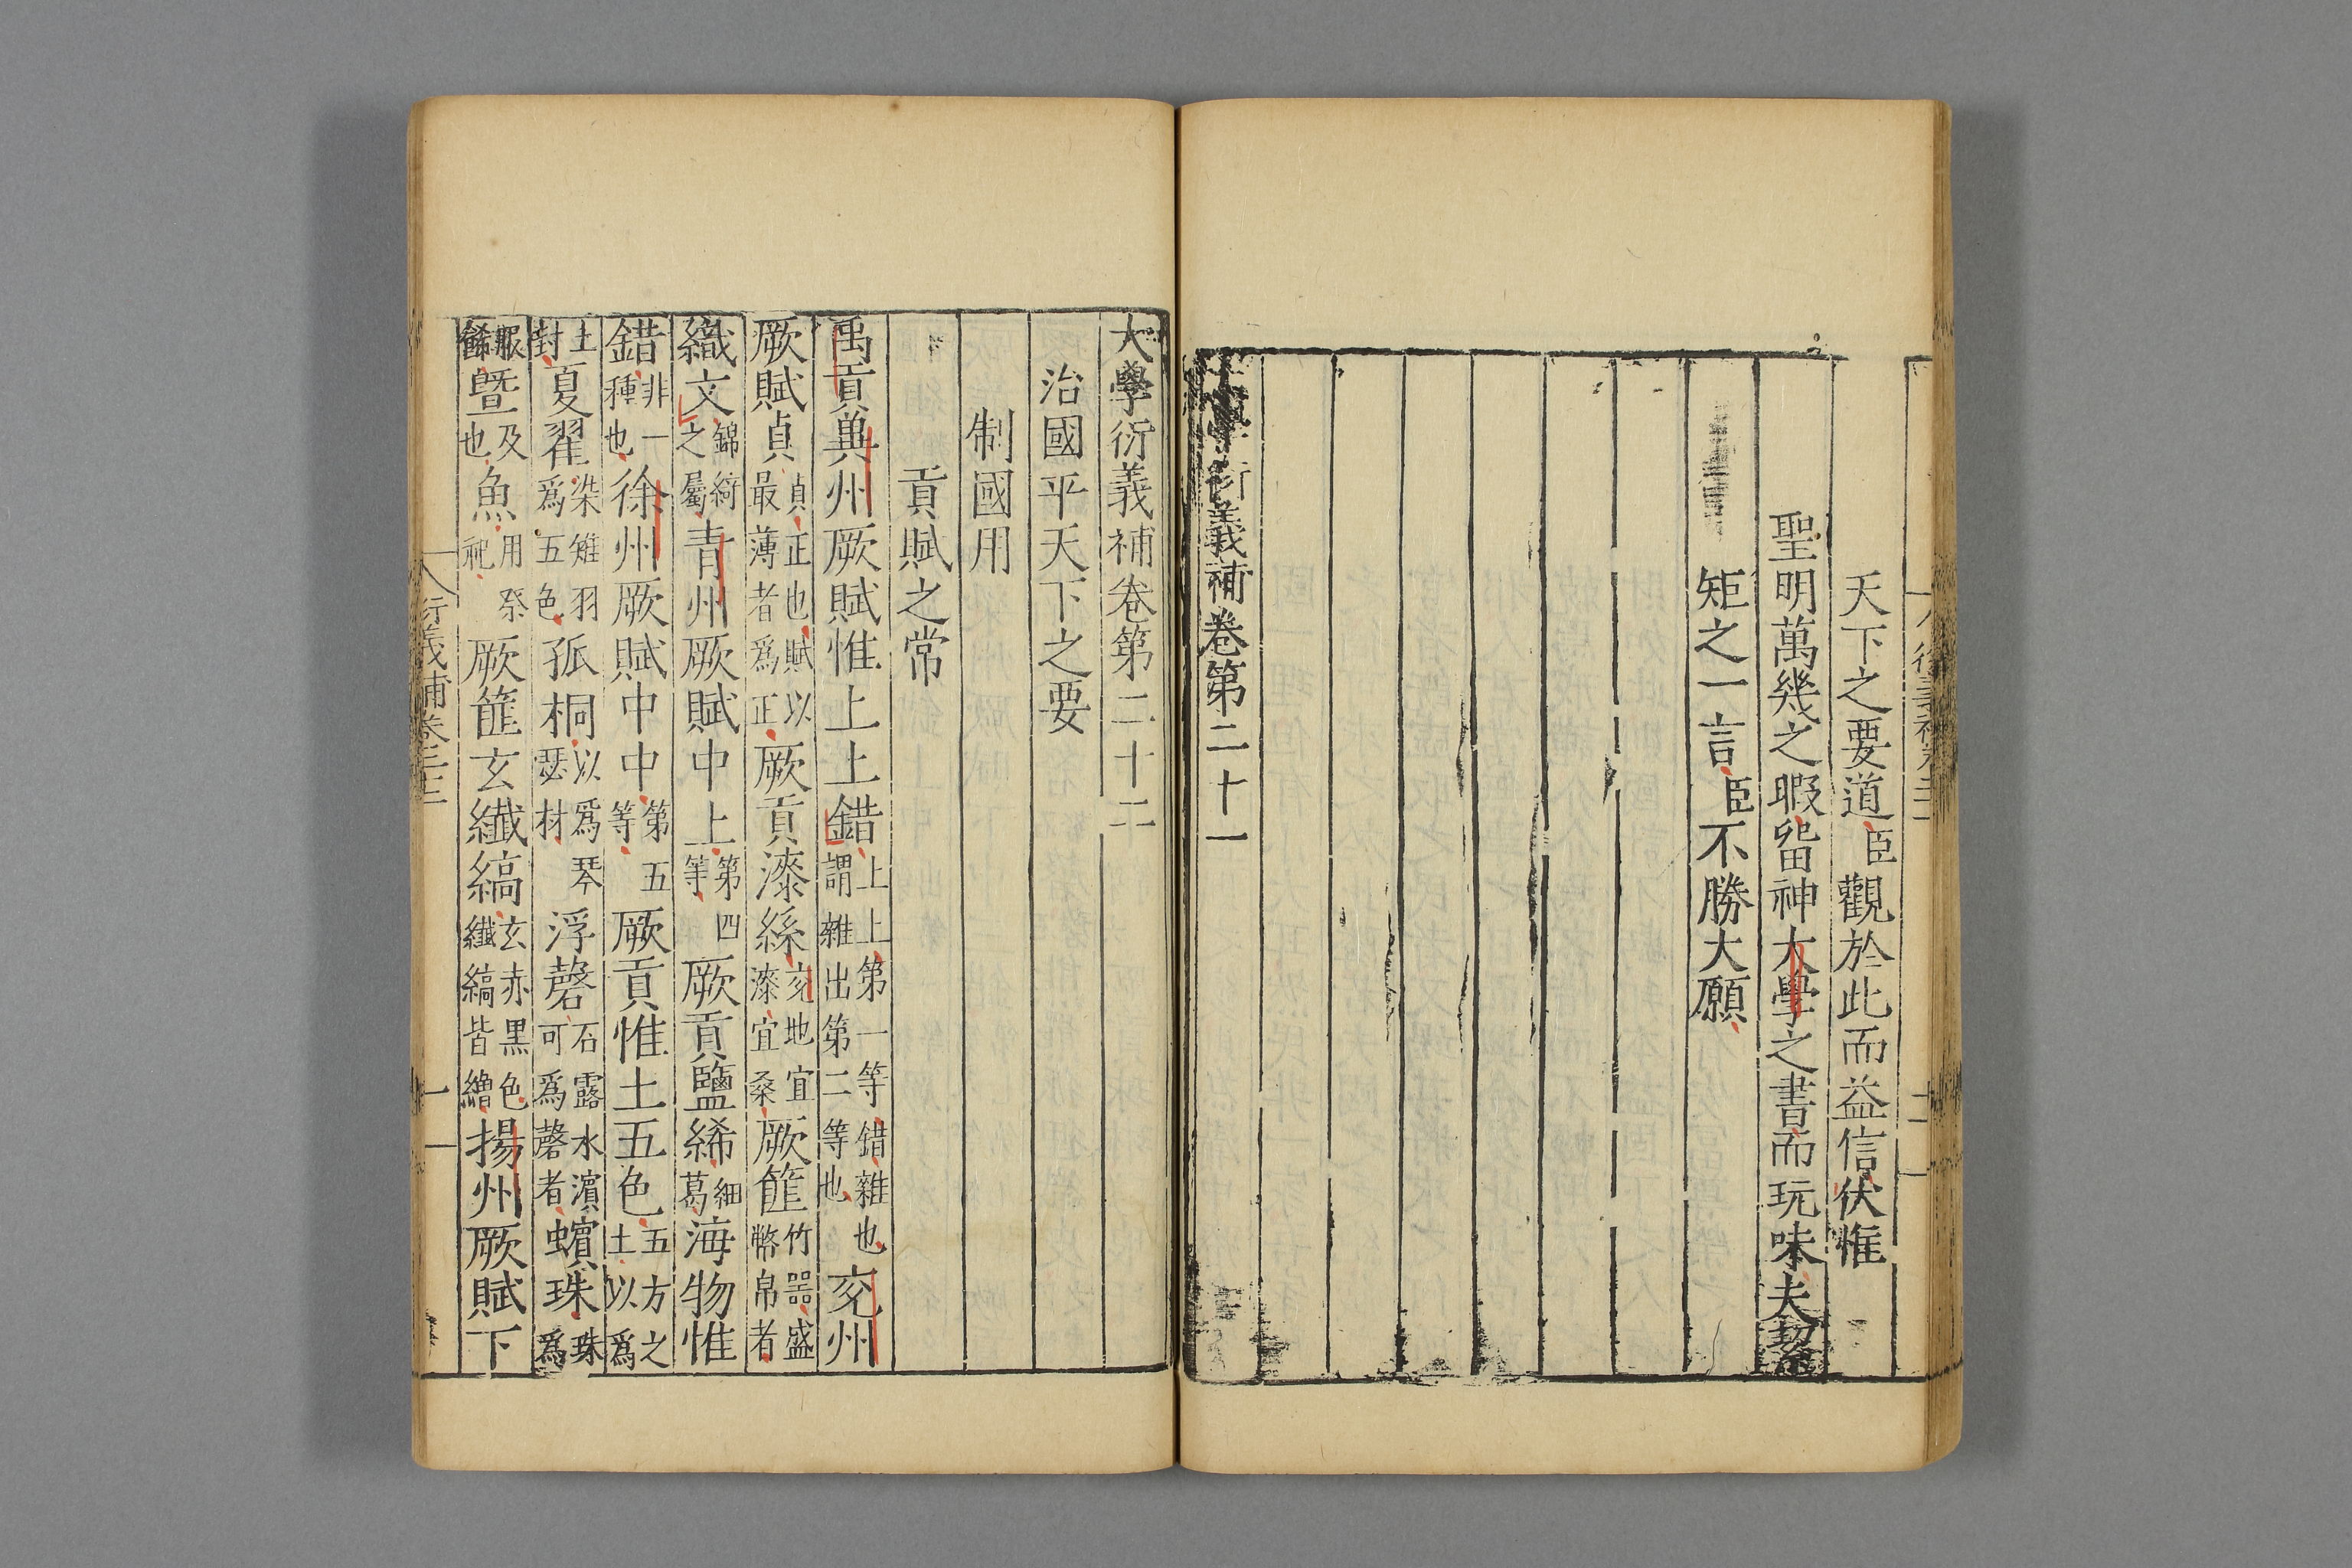 天下之要道臣觀於此而益信伏惟
聖明萬幾之暇畱神大學之書而玩味夫絜
矩之一言臣不勝大願
大學衍義補卷第二十一
大學衍義補卷第二十二
治國平天下之要
制國用
貢賦之常
禹貢兾州厥賦惟上上錯上上第一等錯雜也謂雜出第二等也兖州
厥賦貞貞正也賦以最薄者爲正厥貢漆絲兖地宜漆宜桑厥篚竹器盛幣帛者
織文錦綺之屬青州厥賦中上第四等厥貢鹽絺細葛海物惟
錯非一種也徐州厥賦中中第五等厥貢惟土五色五方之土以爲
土封夏翟染雉羽爲五色孤桐以爲琴瑟材浮磬石露水濱可爲磬者蠙珠珠爲
服餙暨及也魚用祭祀厥篚玄纖縞玄赤黑色纖縞皆繒揚州厥賦下
衍義補卷二十二
一